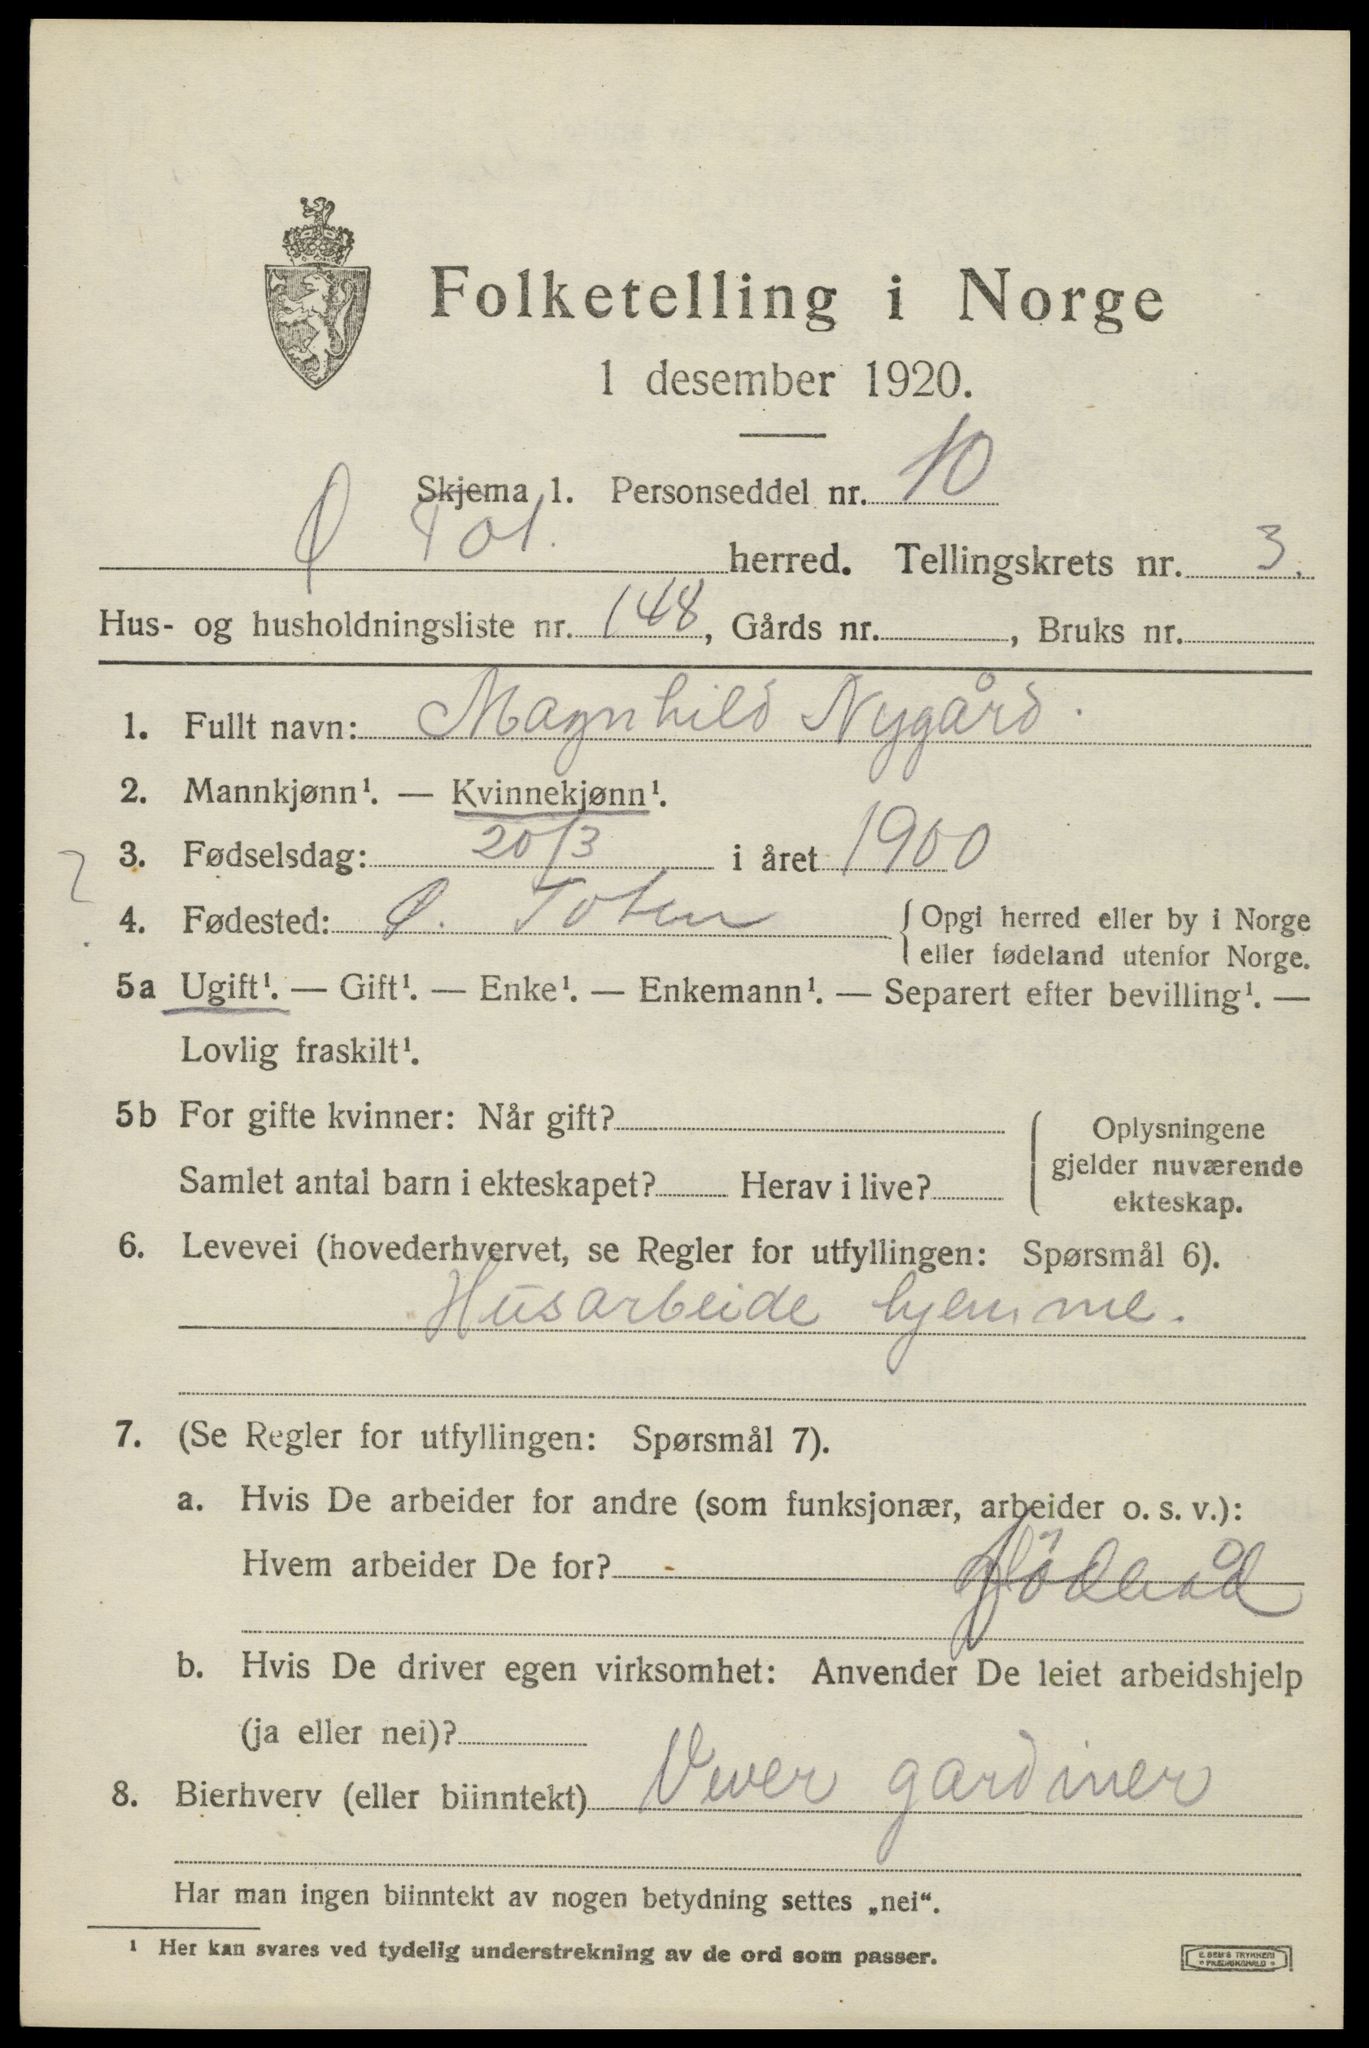 Folketelling i Norge
1 desember 1920.
Skjema 1. Personseddel nr. 10
Ø Tot. herred. Tellingskrets nr. 3.
Hus- og husholdningsliste nr. 148, Gårds nr. , Bruks nr.
1. Fullt navn: Magnhild Nygård.
2. Mannkjønn¹. — Kvinnekjønn¹.
3. Fødselsdag: 20/3 i året 1900
4. Fødested: Ø. Toten {Opgi herred eller by i Norge
eller fødeland utenfor Norge.
5a Ugift¹. — Gift¹. — Enke¹. — Enkemann¹. — Separert efter bevilling¹. —
Lovlig fraskilt¹.
5b For gifte kvinner: Når gift?
Samlet antal barn i ekteskapet? Herav i live?
Oplysningene
gjelder nuværende
ekteskap.
6. Levevei (hovederhvervet, se Regler for utfyllingen: Spørsmål 6).
Husarbeide hjemme.
7. (Se Regler for utfyllingen: Spørsmål 7).
a. Hvis De arbeider for andre (som funksjonær, arbeider o. s. v.):
Hvem arbeider De for? -
b. Hvis De driver egen virksomhet: Anvender De leiet arbeidshjelp
(ja eller nei)?
8. Bierhverv (eller biinntekt) Vever gardiner
Har man ingen biinntekt av nogen betydning settes „nei“.
¹ Her kan svares ved tydelig understrekning av de ord som passer.
E. SEM'S TRYKKERI
FREDRIKSHALD